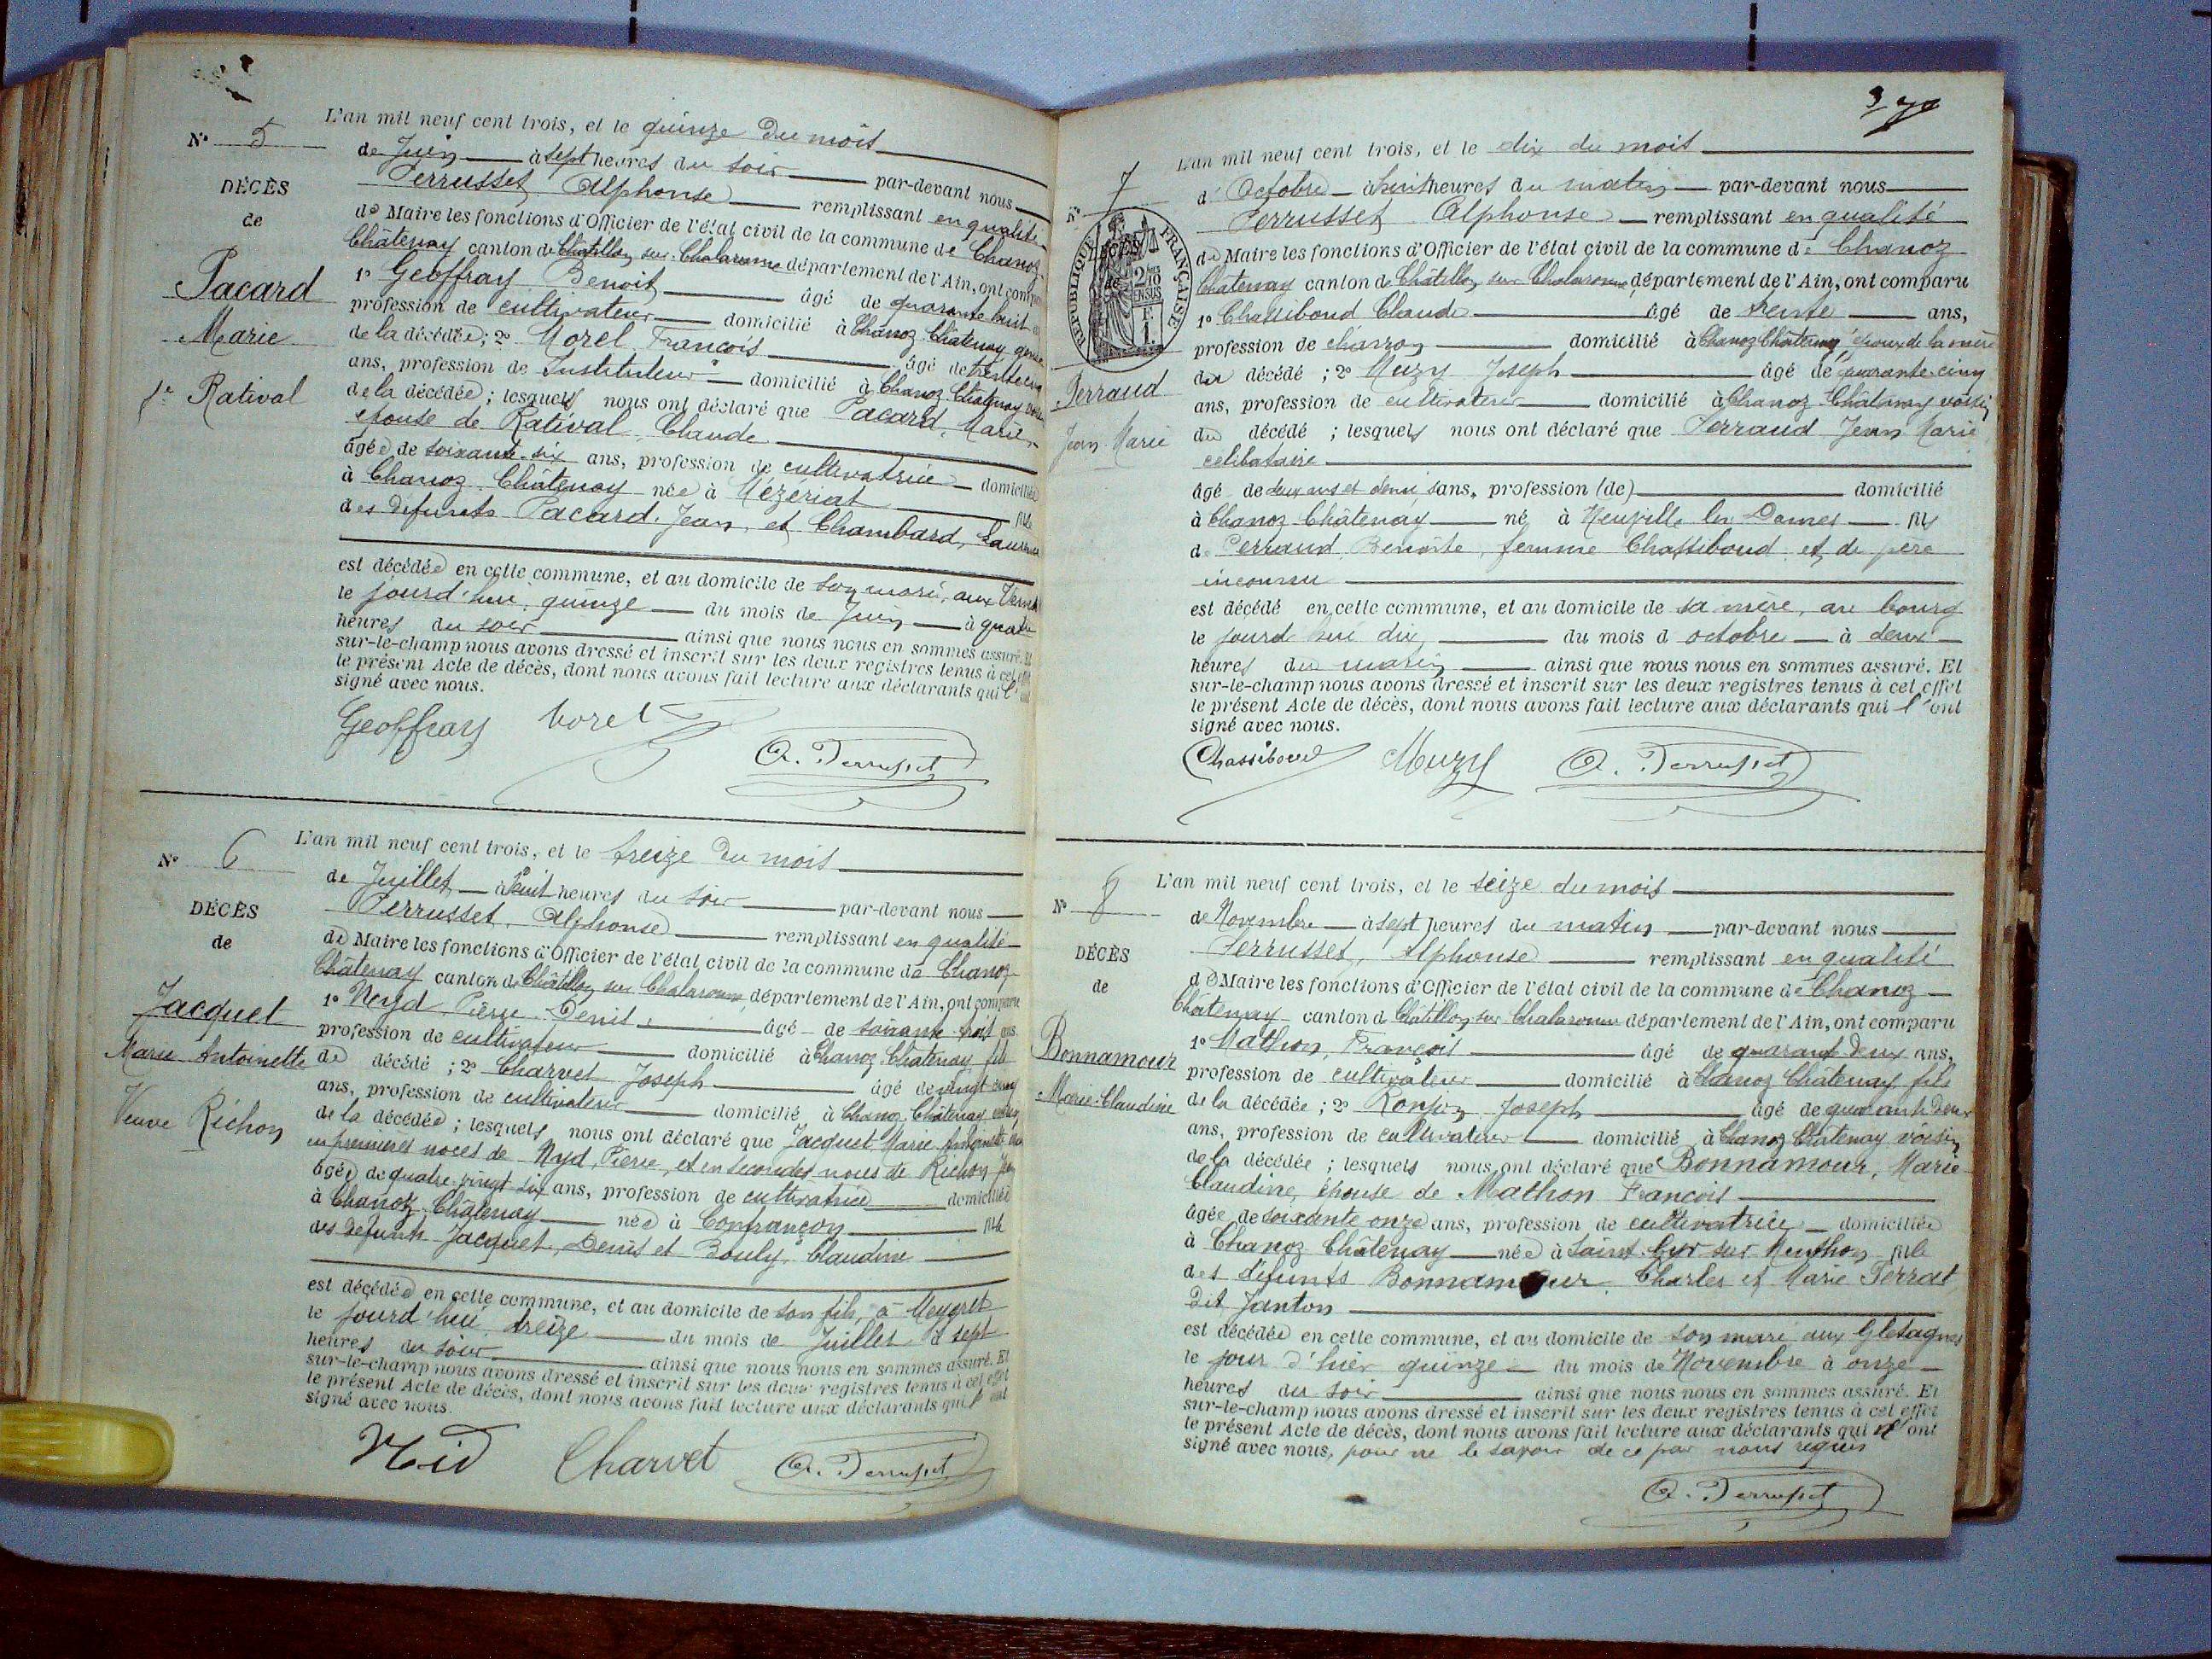 L'an mil neuf cent trois, et le quinze du mois
N° 5
de Juin à sept heures du soir par-devant nous
DÉCÈS
Perrusset Alphonse remplissant en qualité
de
de Maire les fonctions d'Officier de l'état civil de la commune de Chanoz
Châtenay canton de Châtillon sur Chalaronne département de l'Ain, ont comparu
Pacard
1° Geoffray Benoit âgé de quarante huit
profession de cultivateur domicilié à Chanoz Châtenay gendre
Marie
de la décédée; 2° Morel François âgé de
ans, profession de Instituteur domicilié à Chanoz Châtenay voisin
fe Rativat
de la décédée; lesquels nous ont déclaré que Pacard, Marie,
épouse de Rativat, Claude
âgée de soixante-six ans, profession de cultivatrice domiciliée
à Chanoz Châtenay née à Mézériat fille
des défunts Pacard Jean et Chambard,
est décédée en cette commune, et au domicile de son mari, aux
le jourd'hui quinze du mois de Juin à quatre
heures du soir ainsi que nous nous en sommes assuré. Et
sur-le-champ nous avons dressé et inscrit sur les deux registres tenus à cet effet
le présent Acte de décès, dont nous avons fait lecture aux déclarants qui l'ont
signé avec nous.
Geoffray Morel A. Perrusset
L'an mil neuf cent trois, et le treize du mois
N° 6
de Juillet à huit heures du soir par-devant nous
DÉCÈS
Perrusset, Alphonse remplissant en qualité
de
de Maire les fonctions d'Officier de l'état civil de la commune de Chanoz
Châtenay canton de Châtillon sur Chalaronne département de l'Ain, ont comparu
Jacquet
1° Neyd Pierre Denis âgé de soixante trois ans
profession de cultivateur domicilié à Chanoz Châtenay fils
Marie Antoinette
de décédé; 2° Charvet Joseph âgé de vingt cinq
ans, profession de cultivateur domicilié à Chanoz Châtenay voisin
Veuve Richon
de la décédée; lesquels nous ont déclaré que Jacquet Marie Antoinette
en premières noces de Nyd, Pierre, et en secondes noces de Richon
âgée de quatre vingt six ans, profession de cultivatrice domiciliée
à Chanoz Châtenay née à Confrançon fille
des défunts Jacquet, Denis et Bouly, Claudine
est décédée en cette commune, et au domicile de son fils, à
le jourd'hui treize du mois de Juillet à sept
heures du soir ainsi que nous nous en sommes assuré. Et
sur-le-champ nous avons dressé et inscrit sur les deux registres tenus à cet effet
le présent Acte de décès, dont nous avons fait lecture aux déclarants qui l'ont
signé avec nous.
Nid Charvet A. Perrusset
L'an mil neuf cent trois, et le dix du mois
N° 7
d'Octobre à huit heures du matin par-devant nous
Perrusset Alphonse remplissant en qualité
DÉCÈS
de
RÉPUBLIQUE FRANÇAISE
de Maire les fonctions d'Officier de l'état civil de la commune de Chanoz
Châtenay canton de Châtillon sur Chalaronne département de l'Ain, ont comparu
1° Chassiboud Claude âgé de trente ans,
profession de charron domicilié à Chanoz Châtenay époux de la mère
Perraud
du décédé; 2° Muzy Joseph âgé de quarante-cinq
ans, profession de cultivateur domicilié à Chanoz Châtenay voisin
Jean Marie
du décédé; lesquels nous ont déclaré que Perraud Jean Marie
célibataire
âgé de deux ans et demi, sans profession (de) domicilié
à Chanoz Châtenay né à Neuville les Dames fils
de Perraud Benoite, femme Chassiboud et de père
inconnu
est décédé en cette commune, et au domicile de sa mère, au bourg
le jourd'hui dix du mois d'octobre à deux
heures du matin ainsi que nous nous en sommes assuré. Et
sur-le-champ nous avons dressé et inscrit sur les deux registres tenus à cet effet
le présent Acte de décès, dont nous avons fait lecture aux déclarants qui l'ont
signé avec nous.
Chassiboud Muzy A. Perrusset
L'an mil neuf cent trois, et le seize du mois
N° 8
de Novembre à sept heures du matin par-devant nous
DÉCÈS
Perrusset, Alphonse remplissant en qualité
de
de Maire les fonctions d'Officier de l'état civil de la commune de Chanoz
Châtenay canton de Châtillon sur Chalaronne département de l'Ain, ont comparu
Bonnamour
1° Mathon, François âgé de quarante deux ans,
profession de cultivateur domicilié à Chanoz Châtenay fils
Marie-Claudine
de la décédée; 2° Ronjon Joseph âgé de quarante deux
ans, profession de cultivateur domicilié à Chanoz Châtenay voisin
de la décédée; lesquels nous ont déclaré que Bonnamour, Marie
Claudine, épouse de Mathon François
âgée de soixante onze ans, profession de cultivatrice domiciliée
à Chanoz Châtenay née à Saint Cyr sur Menthon fille
des défunts Bonnamour Charles et Marie Perrat
dit Janton
est décédée en cette commune, et au domicile de son mari aux
le jour d'hier quinze du mois de Novembre à onze
heures du soir ainsi que nous nous en sommes assuré. Et
sur-le-champ nous avons dressé et inscrit sur les deux registres tenus à cet effet
le présent Acte de décès, dont nous avons fait lecture aux déclarants qui n'ont
signé avec nous, pour ne le savoir de ce par nous requis
A. Perrusset